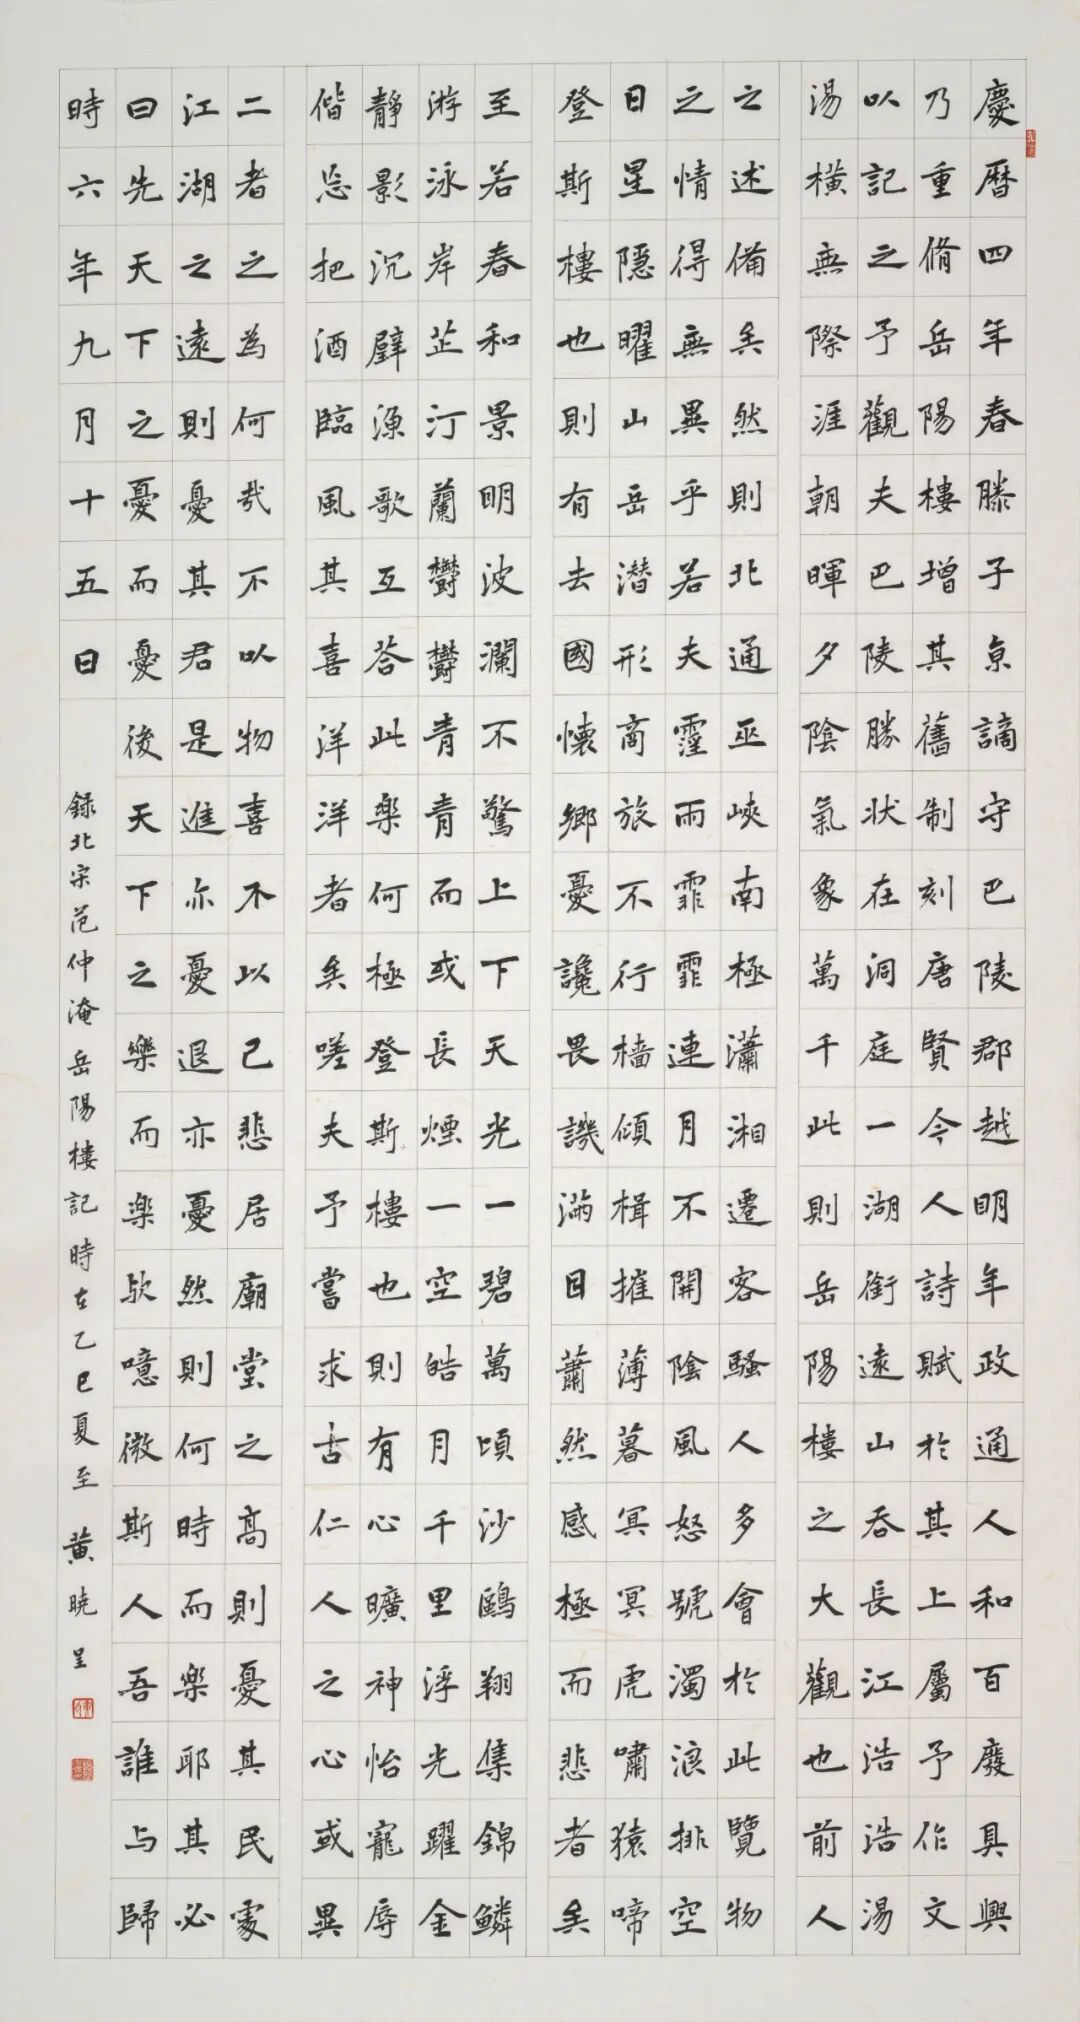 慶曆四年春滕子京謫守巴陵郡越明年政通人和百廢具興
乃重脩岳陽樓增其舊制刻唐賢今人詩賦於其上屬予作文
以記之予觀夫巴陵勝狀在洞庭一湖銜遠山吞長江浩浩湯
湯橫無際涯朝暉夕陰氣象萬千此則岳陽樓之大觀也前人
之述備矣然則北通巫峽南極瀟湘遷客騷人多會於此覽物
之情得無異乎若夫霪雨霏霏連月不開陰風怒號濁浪排空
日星隱曜山岳潛形商旅不行檣傾楫摧薄暮冥冥虎嘯猿啼
登斯樓也則有去國懷鄉憂讒畏譏滿目蕭然感極而悲者矣
至若春和景明波瀾不驚上下天光一碧萬頃沙鷗翔集錦鱗
游泳岸芷汀蘭鬱鬱青青而或長煙一空皓月千里浮光躍金
靜影沉璧漁歌互荅此樂何極登斯樓也則有心曠神怡寵辱
偕忘把酒臨風其喜洋洋者矣嗟夫予嘗求古仁人之心或異
二者之為何哉不以物喜不以己悲居廟堂之高則憂其民處
江湖之遠則憂其君是進亦憂退亦憂然則何時而樂耶其必
曰先天下之憂而憂後天下之樂而樂歟噫微斯人吾誰與歸
時六年九月十五日
録北宋范仲淹岳陽樓記時在乙巳夏至 黄晓呈